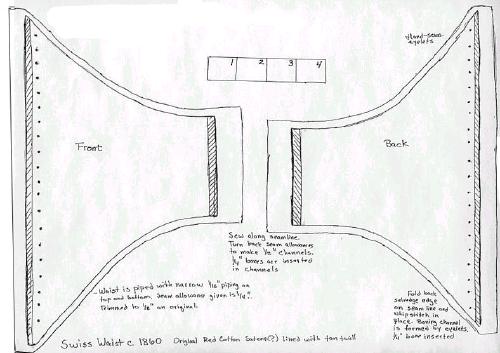 Hand-sewn
eyelets
1 2 3 4
Front
Back
Sew along seamline.
Turn back seam allowances
to make 1/2" channels.
1/4" bones are inserted
in channels
- Waist is piped with narrow piping on
top and bottom. Seam allowance given is 1/2".
Trimmed to 1/8" on original.
Fold back
selvedge edge
on seam line and
whipstitch in
place. Boning channel
is formed by eyelets.
1/4" bone inserted
Swiss Waist c 1860 Original Red Cotton Sateen(?) lined with tan twill